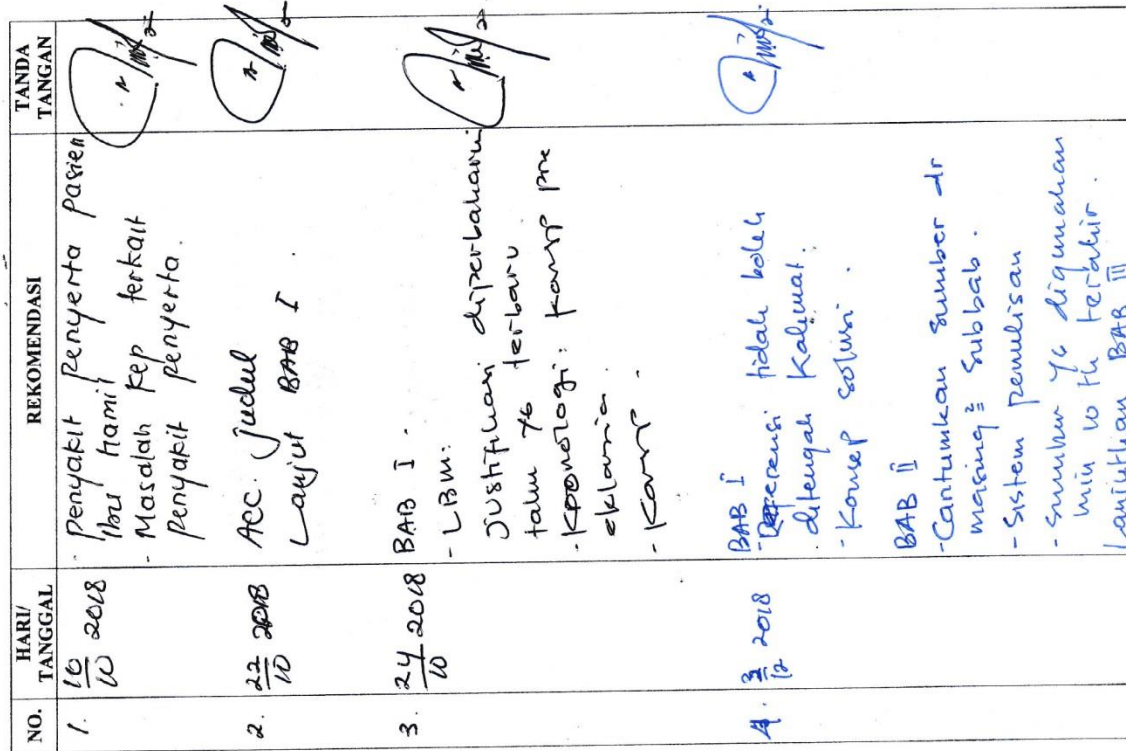 NO.
HARI/
TANGGAL
REKOMENDASI
TANDA
TANGAN
1.
16/10 2018
- Penyakit penyerta pasien
Ibu hamil
- Masalah kep terkait
penyakit penyerta.
2.
22/10 2018
Acc. judul
Lanjut BAB I.
3.
24/10 2018
BAB I.
- LBM:
justifikasi diperbaharui
tahun yg terbaru
- Kronologi: pre
eklamsia.
4.
3/12 2018
BAB I
- Referensi tidak boleh
ditengah kalimat.
- Konsep solusi.
BAB II
- Cantumkan sumber dr
masing² subbab.
- Sistem penulisan
- sumber yg digunakan
min 10 th terakhir.
Lanjutkan BAB III